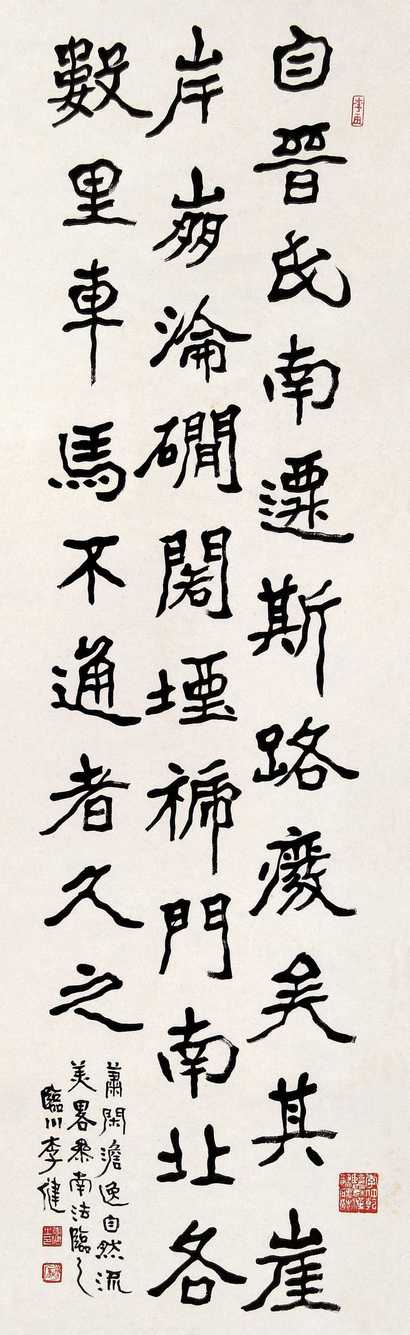 自晉氏南遷斯路廢矣其崖
岸崩淪磵閣堙褫門南北各
數里車馬不通者久之
蕭閑澹逸自然流
美畧參南法臨之
臨川李健